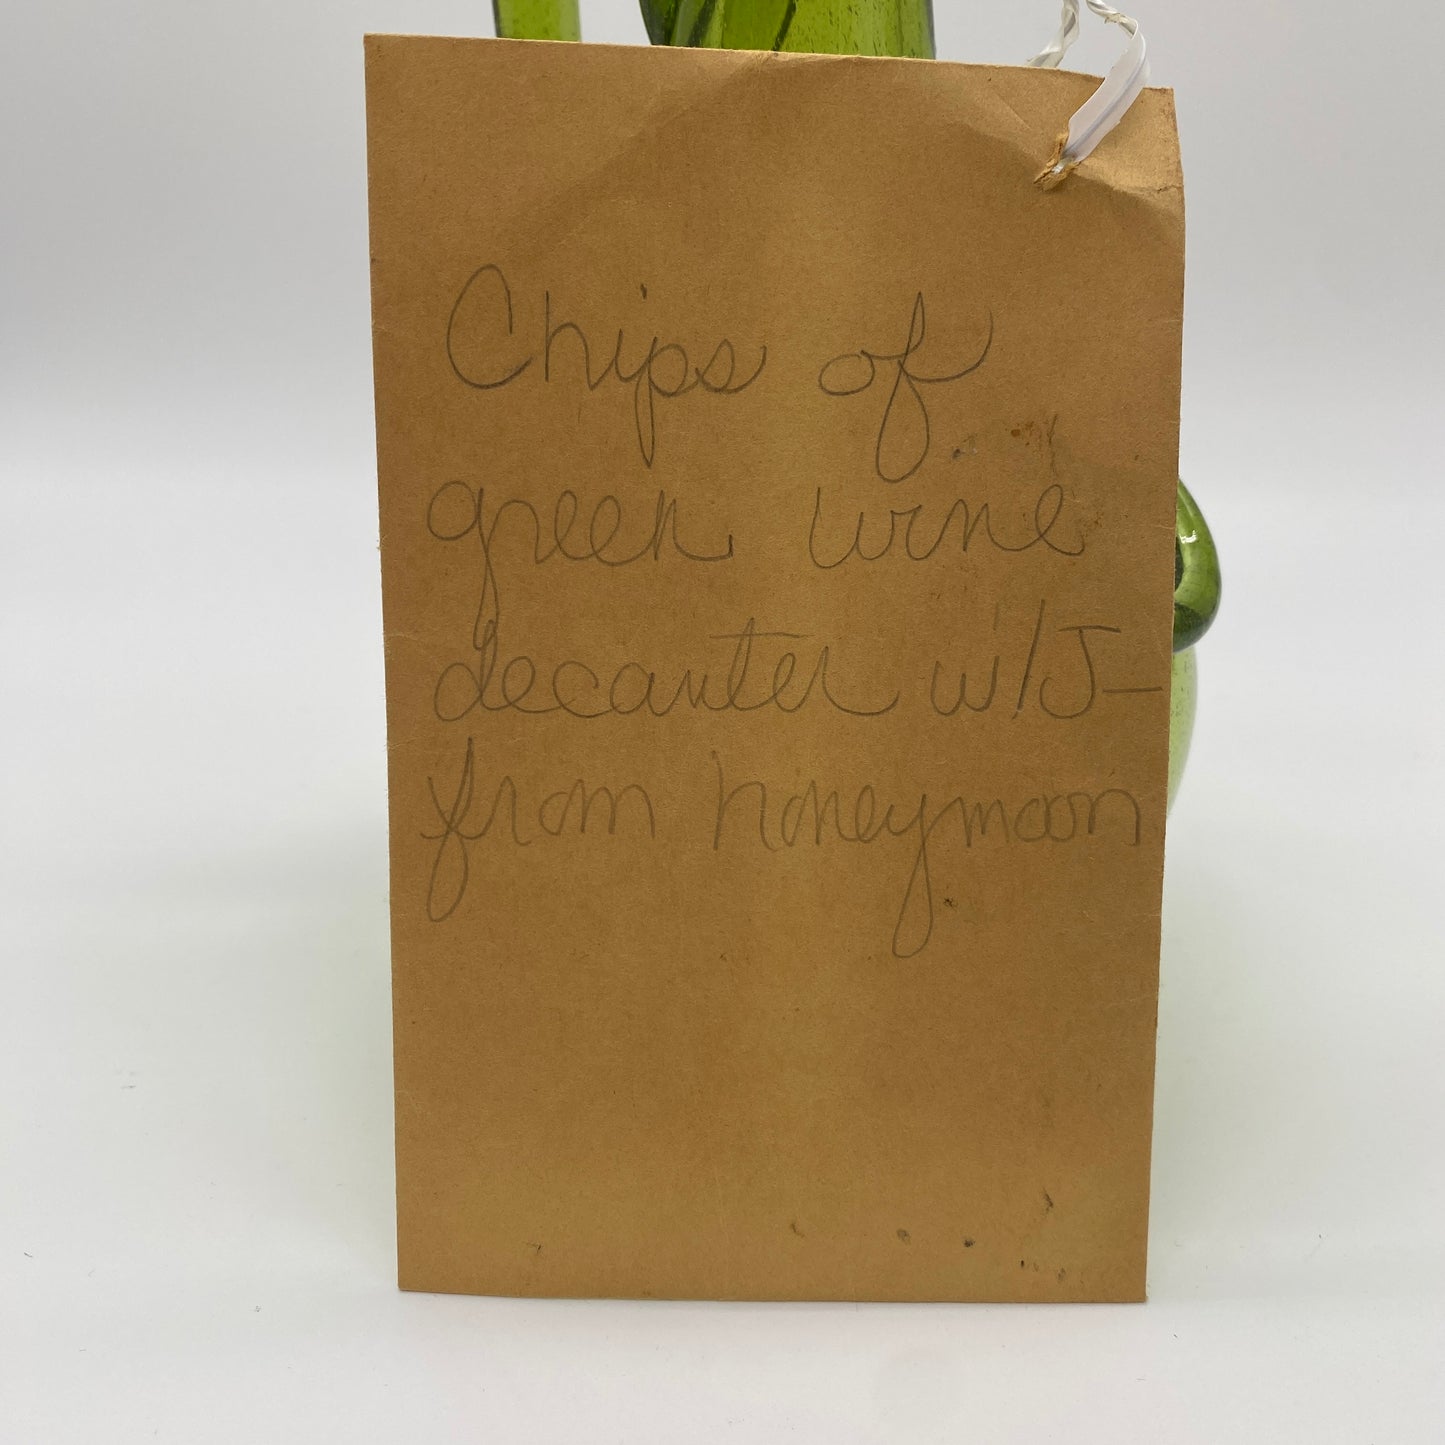 Chips of
green wine
decanter w/J-
from honeymoon